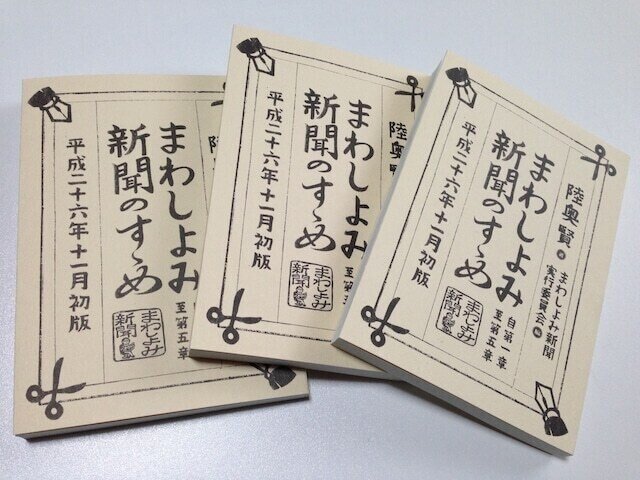 まわしよみ
新聞のすゝめ
至第五章
まわしよみ
新聞
平成二十六年十一月初版
陸奥賢
まわしよみ
新聞のすゝめ
至第
まわしよみ
新聞
平成二十六年十一月初版
陸奥賢
まわしよみ新聞
実行委員会
まわしよみ
新聞のすゝめ
自第一章
至第五章
まわしよみ
新聞
平成二十六年十一月初版